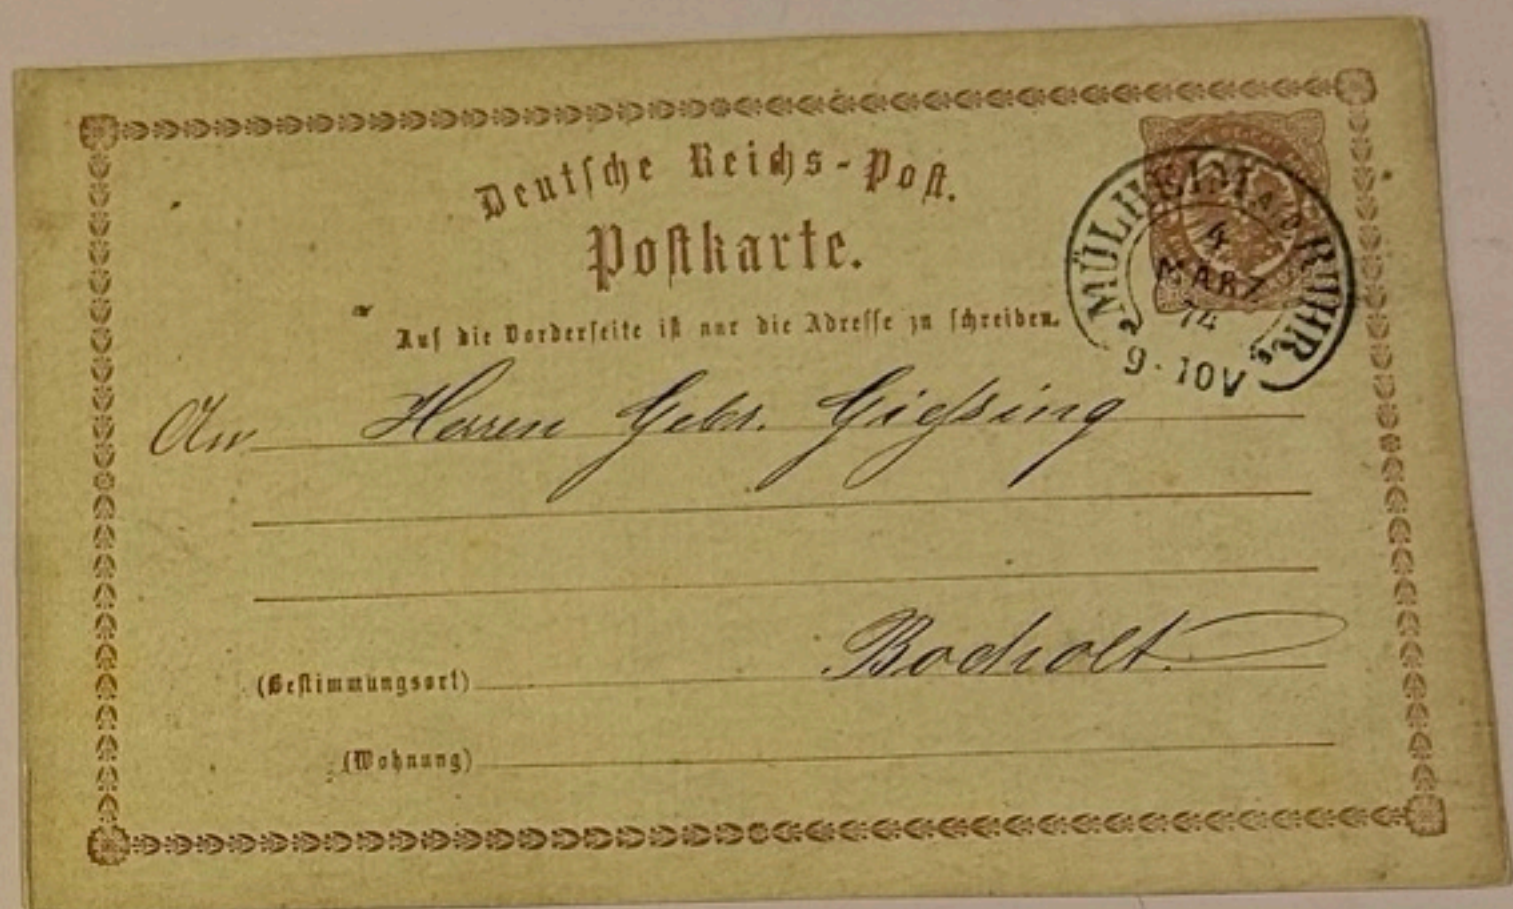 Deutsche Reichs-Post.
Postkarte.
Auf die Vorderseite ist nur die Adresse zu schreiben.
MÜLHEIM A.D. RUHR.
4
MÄRZ
74
9-10V
An Herren Gebr. Gießing
(Bestimmungsort) Bocholt.
(Wohnung)